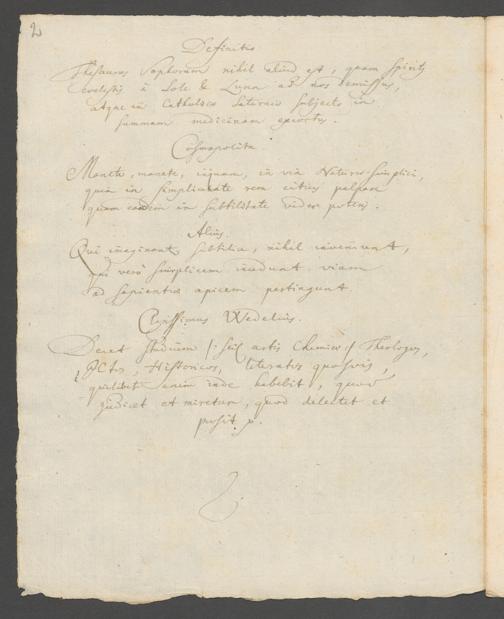 2
Definitio
Thesaurus Sophorum nihil aliud est, quam Spiritus
coelestis à Sole & Luna ad nos demissus,
atque in Catholico Saturnio subjecto in
summam medicinam
Cosmopolita.
Manete, manete, inquam, in via Naturae simplici,
quia in simplicitate rem citius palpare
quam eandem in subtilitate videre potens.
Alius.
Qui imaginantur subtilia, nihil inveniunt,
qui vero simplicem viam
ad sapientiae apicem pertingunt.
Wedelius.
Decet studium /: scil artis Chemicae :/ Theologos,
JCtos, Historicos, literatos quosvis,
quilibet enim inde habebit, quod
judicet et miretur, quod delectet et
prosit p.